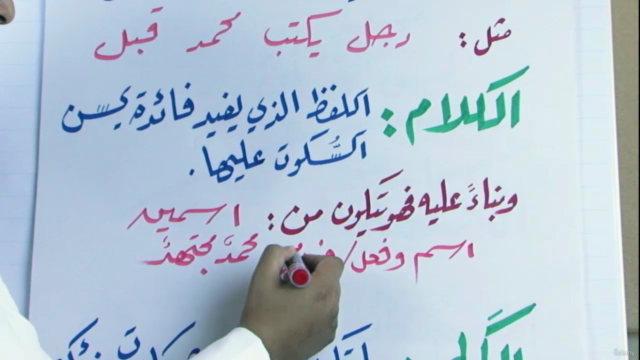 مثل: رجل يكتب محمد قبل
الكلام: اللفظ الذي يفيد فائدة يحسن
السُّكوت عليها.
وبناءً عليه فهو يتكون من: اسمين
اسم وفعل / محمدٌ مجتهدٌ